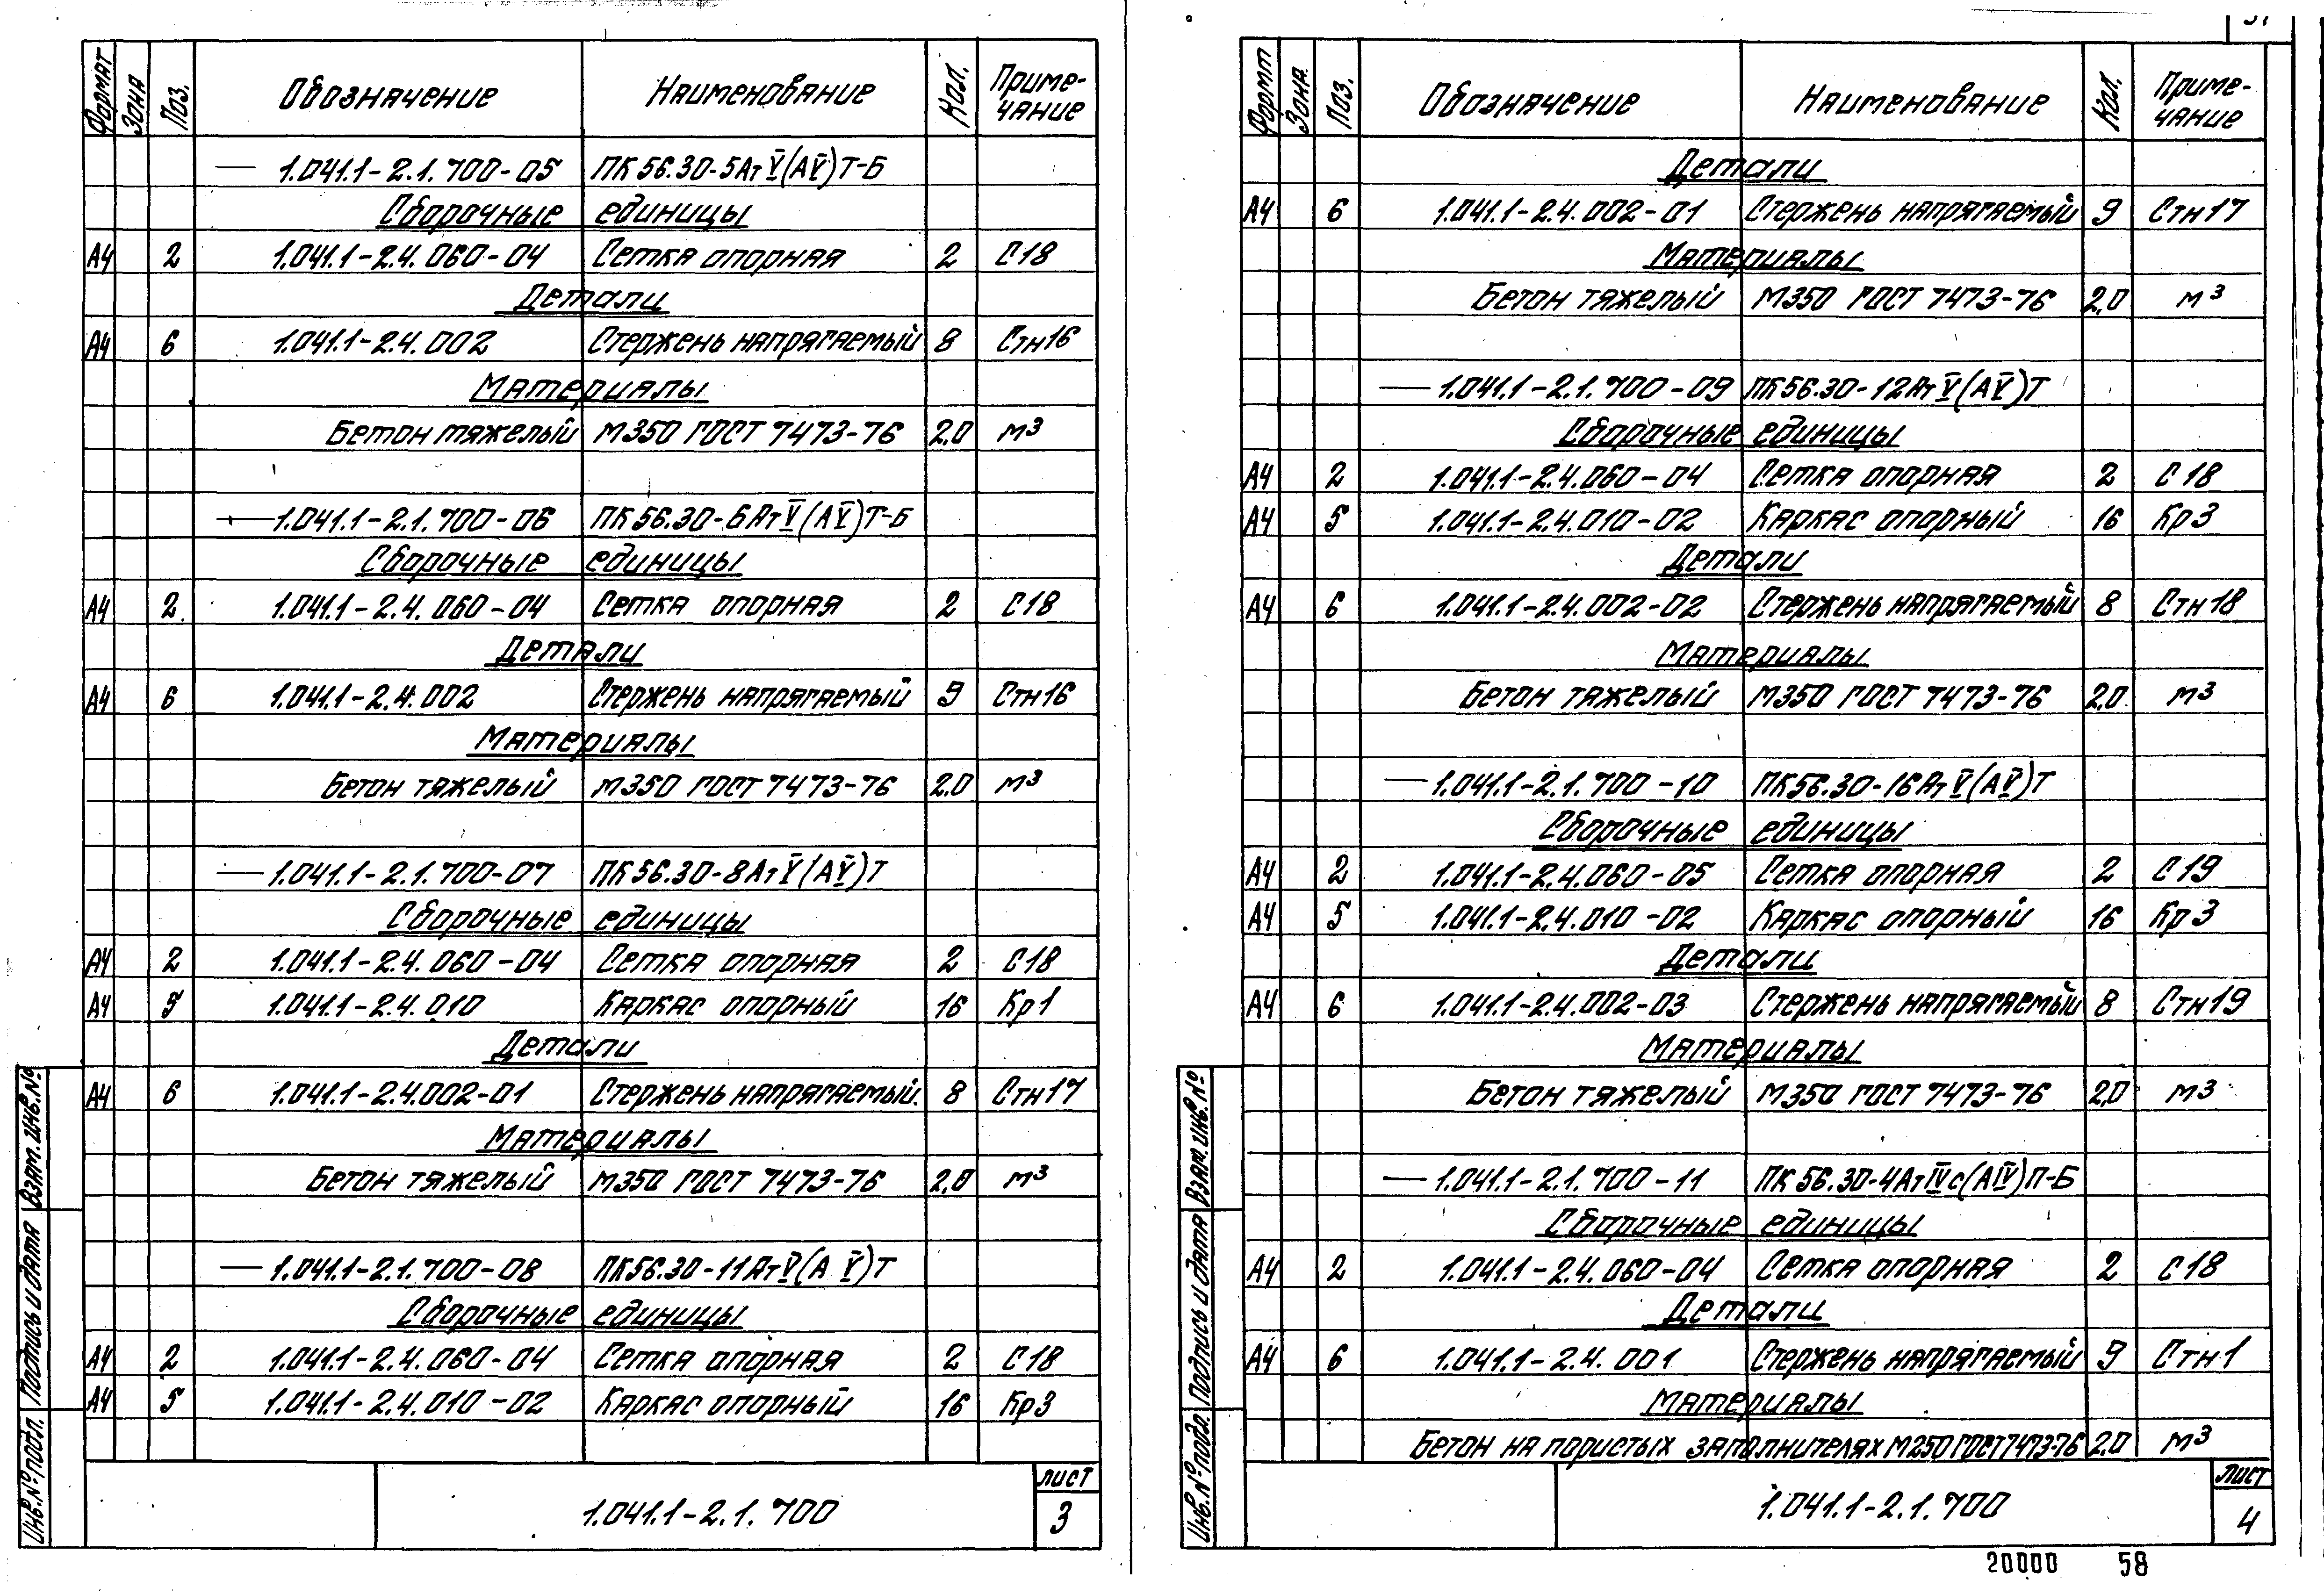 Формат Зона Поз. Обозначение Наименование Кол. Приме-
чание
— 1.041.1-2.1.700-05 ПК56.30-5АтV(АV)Т-Б
Сборочные единицы
А4 2 1.041.1-2.4.060-04 Сетка опорная 2 С18
Детали
А4 6 1.041.1-2.4.002 Стержень напрягаемый 8 Стн16
Материалы
Бетон тяжелый М350 ГОСТ 7473-76 2,0 м³
— 1.041.1-2.1.700-06 ПК56.30-6АтV(АV)Т-Б
Сборочные единицы
А4 2 1.041.1-2.4.060-04 Сетка опорная 2 С18
Детали
А4 6 1.041.1-2.4.002 Стержень напрягаемый 9 Стн16
Материалы
Бетон тяжелый М350 ГОСТ 7473-76 2,0 м³
— 1.041.1-2.1.700-07 ПК56.30-8АтV(АV)Т
Сборочные единицы
А4 2 1.041.1-2.4.060-04 Сетка опорная 2 С18
А4 5 1.041.1-2.4.010 Каркас опорный 16 Кр1
Детали
А4 6 1.041.1-2.4.002-01 Стержень напрягаемый. 8 Стн17
Материалы
Бетон тяжелый М350 ГОСТ 7473-76 2,0 м³
— 1.041.1-2.1.700-08 ПК56.30-11АтV(А V)Т
Сборочные единицы
А4 2 1.041.1-2.4.060-04 Сетка опорная 2 С18
А4 5 1.041.1-2.4.010-02 Каркас опорный 16 Кр3
Инв.№подл. Подпись и дата Взам.инв.№
1.041.1-2.1.700
лист
3
Формт Зона Поз. Обозначение Наименование Кол. Приме-
чание
Детали
А4 6 1.041.1-2.4.002-01 Стержень напрягаемый 9 Стн17
Материалы
Бетон тяжелый М350 ГОСТ 7473-76 2,0 м³
— 1.041.1-2.1.700-09 ПК56.30-12АтV(АV)Т
Сборочные единицы
А4 2 1.041.1-2.4.060-04 Сетка опорная 2 С18
А4 5 1.041.1-2.4.010-02 Каркас опорный 16 Кр3
Детали
А4 6 1.041.1-2.4.002-02 Стержень напрягаемый 8 Стн18
Материалы
Бетон тяжелый М350 ГОСТ 7473-76 2,0 м³
— 1.041.1-2.1.700-10 ПК56.30-16АтV(АV)Т
Сборочные единицы
А4 2 1.041.1-2.4.060-05 Сетка опорная 2 С19
А4 5 1.041.1-2.4.010-02 Каркас опорный 16 Кр3
Детали
А4 6 1.041.1-2.4.002-03 Стержень напрягаемый 8 Стн19
Материалы
Бетон тяжелый М350 ГОСТ 7473-76 2,0 м³
— 1.041.1-2.1.700-11 ПК56.30-4АтIVс(АIV)П-Б
Сборочные единицы
А4 2 1.041.1-2.4.060-04 Сетка опорная 2 С18
Детали
А4 6 1.041.1-2.4.001 Стержень напрягаемый 9 Стн1
Материалы
Бетон на пористых заполнителях М250 ГОСТ7473-76 2,0 м³
Инв.№подл. Подпись и дата Взам.инв.№
1.041.1-2.1.700
лист
4
20000 58